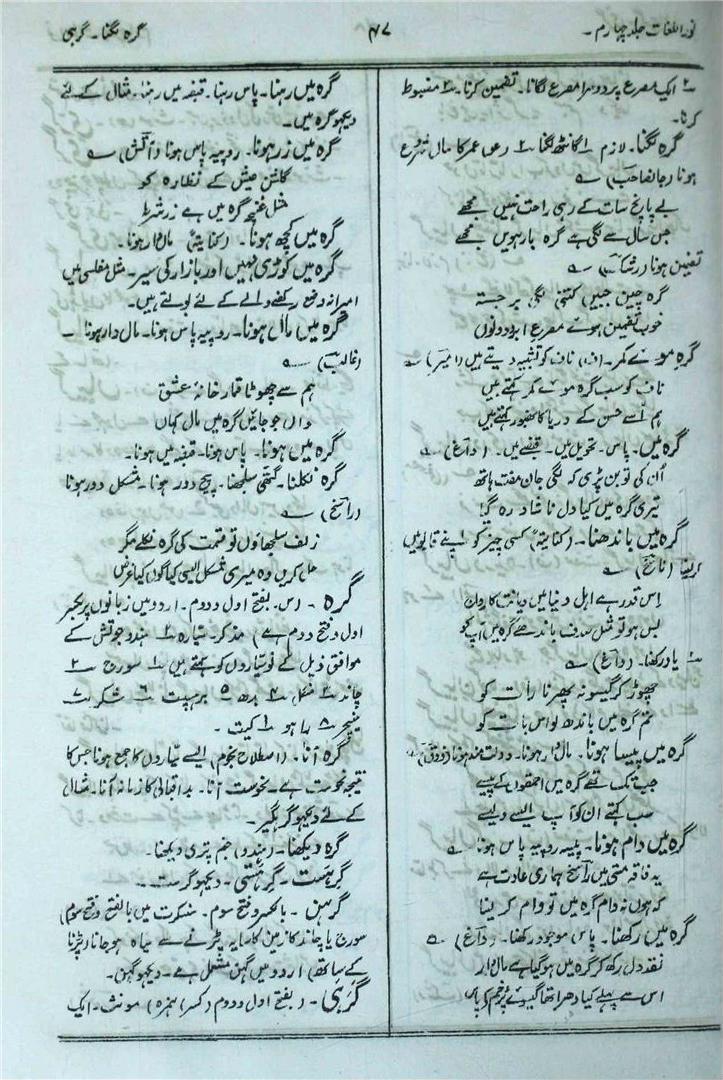 نور اللغات جلد چہارم۔
۴۷
گرہ لگنا۔ گرہی
۲؎ ایک مصرع پر دوسرا مصرع لگانا۔ تضمین کرنا۔ ۳؎ مضبوط
کرنا۔
گرہ لگنا۔ لازم ۱؎ گانٹھ لگنا ۲؎ رعو عمر کا سال شروع
ہونا (جانصاحب) ؎
بے پانچ سات کے رہی راحت نہیں مجھے
جس سال سے لگی ہے گرہ بارھویں مجھے
تضمین ہونا (رشک) ؎
گرہ چین جبیں کتنی لگی برجستہ
خوب تضمین ہوئے مصرع ابرو دونوں
گرہ موئے کمر۔ (ف) ناف کو تشبیہ دیتے ہیں (امیر) ؎
ناف کو سب گرہ موئے کمر کہتے ہیں
ہم اُسے حسن کے دریا کا بھنور کہتے ہیں
گرہ میں۔ پاس۔ تحویل میں۔ قبضے میں۔ (داغ) ؎
اُن کی تو بن پڑی کہ لگی جان مفت ہاتھ
تیری گرہ میں کیا دل ناشاد رہ گیا
گرہ میں باندھنا۔ (کنایۃً) کسی چیز کو اپنے قابو میں
کرلینا (ناسخ) ؎
اِس قدر ہے اہل دنیا میں دیانت کا رواج
بس ہو تو مثل صدف باندھے گرہ میں آب کو
۲؎ یاد رکھنا۔ (داغ) ؎
چھوڑ کر گیسو نہ پھرنا رات کو
تم گرہ میں باندھ لو اس بات کو
گرہ میں پیسا ہونا۔ مال دار ہونا۔ دولت مند ہونا (ذوق) ؎
جب تک تھے گرہ میں احمقوں کے پیسے
سب کہتے ان کو آپ ایسے ویسے
گرہ میں دام ہونا۔ پیسہ روپیہ پاس ہونا ؎
یہ فاقہ مستی میں راسخ ہماری عادت ہے
کہ ہوں نہ دام گرہ میں تو وام کر لینا
گرہ میں رکھنا۔ پاس موجود رکھنا۔ (داغ) ؎
نقد دل رکھ کر گرہ میں ہو گیا ہے مال دار
اس سے پہلے کیا دھرا تھا گیسوئے پُر خم کے پاس
گرہ میں رہنا۔ پاس رہنا۔ قبضہ میں رہنا۔ مثال کے لئے
دیکھو گرہ میں۔
گرہ میں زر ہونا۔ روپیہ پاس ہونا (آتش) ؎
گلشن عیش کے نظارہ کو
مثل غنچہ گرہ میں ہے زر شرط
گرہ میں کچھ ہونا۔ (کنایۃً) مال دار ہونا۔
گرہ میں کوڑی نہیں اور بازار کی سیر۔ مثل مفلسی میں
امیرانہ وضع رکھنے والے کے لئے بولتے ہیں۔
گرہ میں مال ہونا۔ روپیہ پاس ہونا۔ مال دار ہونا۔
(غالب) ؎
ہم سے چھوٹا قمار خانۂ عشق
واں جو جائیں گرہ میں مال کہاں
گرہ میں ہونا۔ پاس ہونا۔ قبضہ میں ہونا۔
گرہ نکلنا۔ گتھی سلجھنا۔ پیچ دور ہونا۔ مشکل دور ہونا
(راسخ) ؎
زلف سلجھاؤں تو قسمت کی گرہ نکلے مگر
حل کریں وہ میری مشکل ایسی کیا اُن کو غرض
گرہ۔ (س۔ بفتح اول و دوم۔ اردو میں زبانوں پر بکسر
اول و فتح دوم ہے) مذکر۔ ستیارہ ۱؎ ہندو جوتش کے
موافق ذیل کے نو ستیاروں کو کہتے ہیں ۱؎ سورج ۲؎
چاند ۳؎ منگل ۴؎ بدھ ۵؎ برہسپت ۶؎ شکر ۷؎
سنیچر ۸؎ راہو ۹؎ کیت۔
گرہ آنا۔ (اصطلاح نجوم) ایسے ستیاروں کا جمع ہونا جس کا
نتیجہ نحوست ہے۔ نحوست آنا۔ بد اقبالی کا زمانہ آنا۔ مثال
کے لئے دیکھو گرہگیر۔
گرہ دیکھنا۔ (ہندو) جنم پتری دیکھنا۔
گرہست۔ گرہستی۔ دیکھو گرست۔
گرہن۔ بالکسر و فتح سوم۔ سنسکرت میں بالفتح و فتح سوم)
سورج یا چاند کا زمین کا سایہ پڑنے سے سیاہ ہو جانا (پڑنا
کے ساتھ) اردو میں گہن مستعمل ہے۔ دیکھو گہن۔
گرئی۔ (بفتح اول و دوم (کسر) ہمزہ) مونث۔ ایک